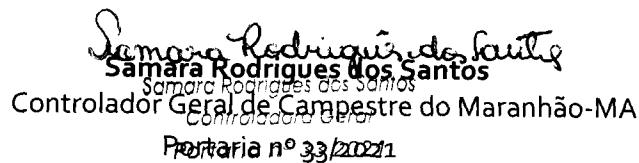 Samara Rodrigues dos Santos
Samara Rodrigues dos Santos
Samara Rodrigues dos Santos
Controlador Geral de Campestre do Maranhão-MA
Controladora Geral
Portaria nº 33/2021